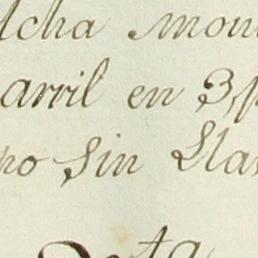 lcha mon
arril en 3,p
no Sin Lla
ta